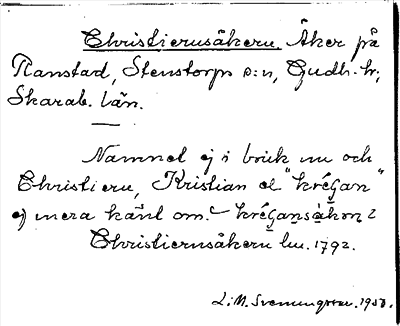 Christiernsåkern. Åker på
Ranstad, Stenstorps s:n, Gudh. hr,
Skarab. län.
Namnet ej i bruk nu och
Christiern, Kristian el "krégan"
ej mera känt om. - krégansåkrn 2
Christiernsåkern lm. 1792.
L. M. Svenungsson. 1930.